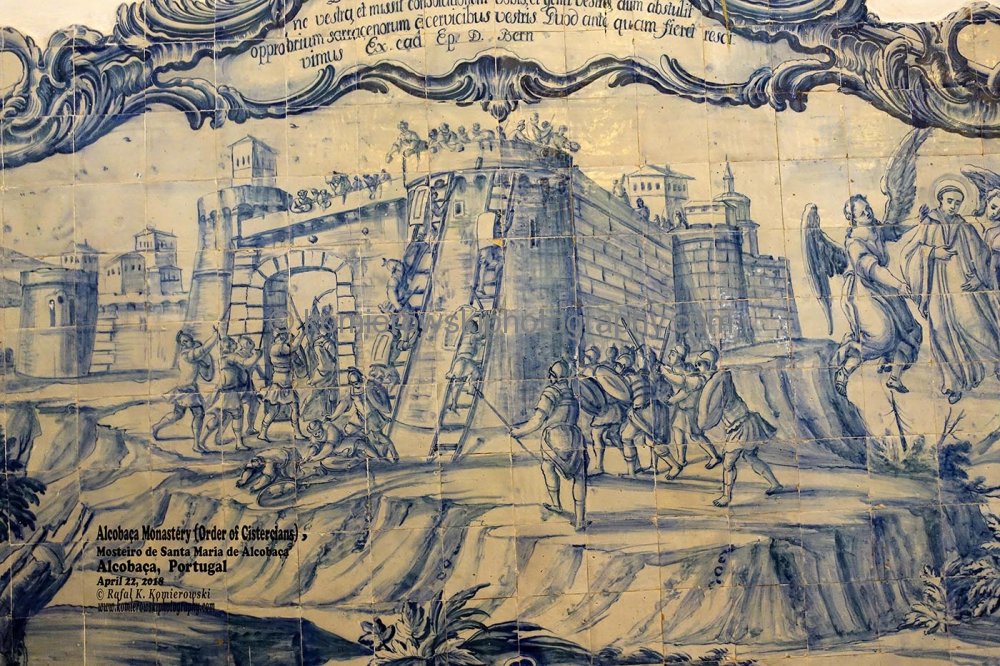 ne vestra, et missit consolationem vobis, et genti vestrae, dum abstulit
opprobrium sarracenorum a cervicibus vestris Duo ante quam fieret resci
vimus Ex ead Ep. D. Bern
komierowskiphotography.com
Alcobaça Monastery (Order of Cistercians),
Mosteiro de Santa Maria de Alcobaça
Alcobaça, Portugal
April 22, 2018
© Rafal K. Komierowski
www.komierowskiphotography.com